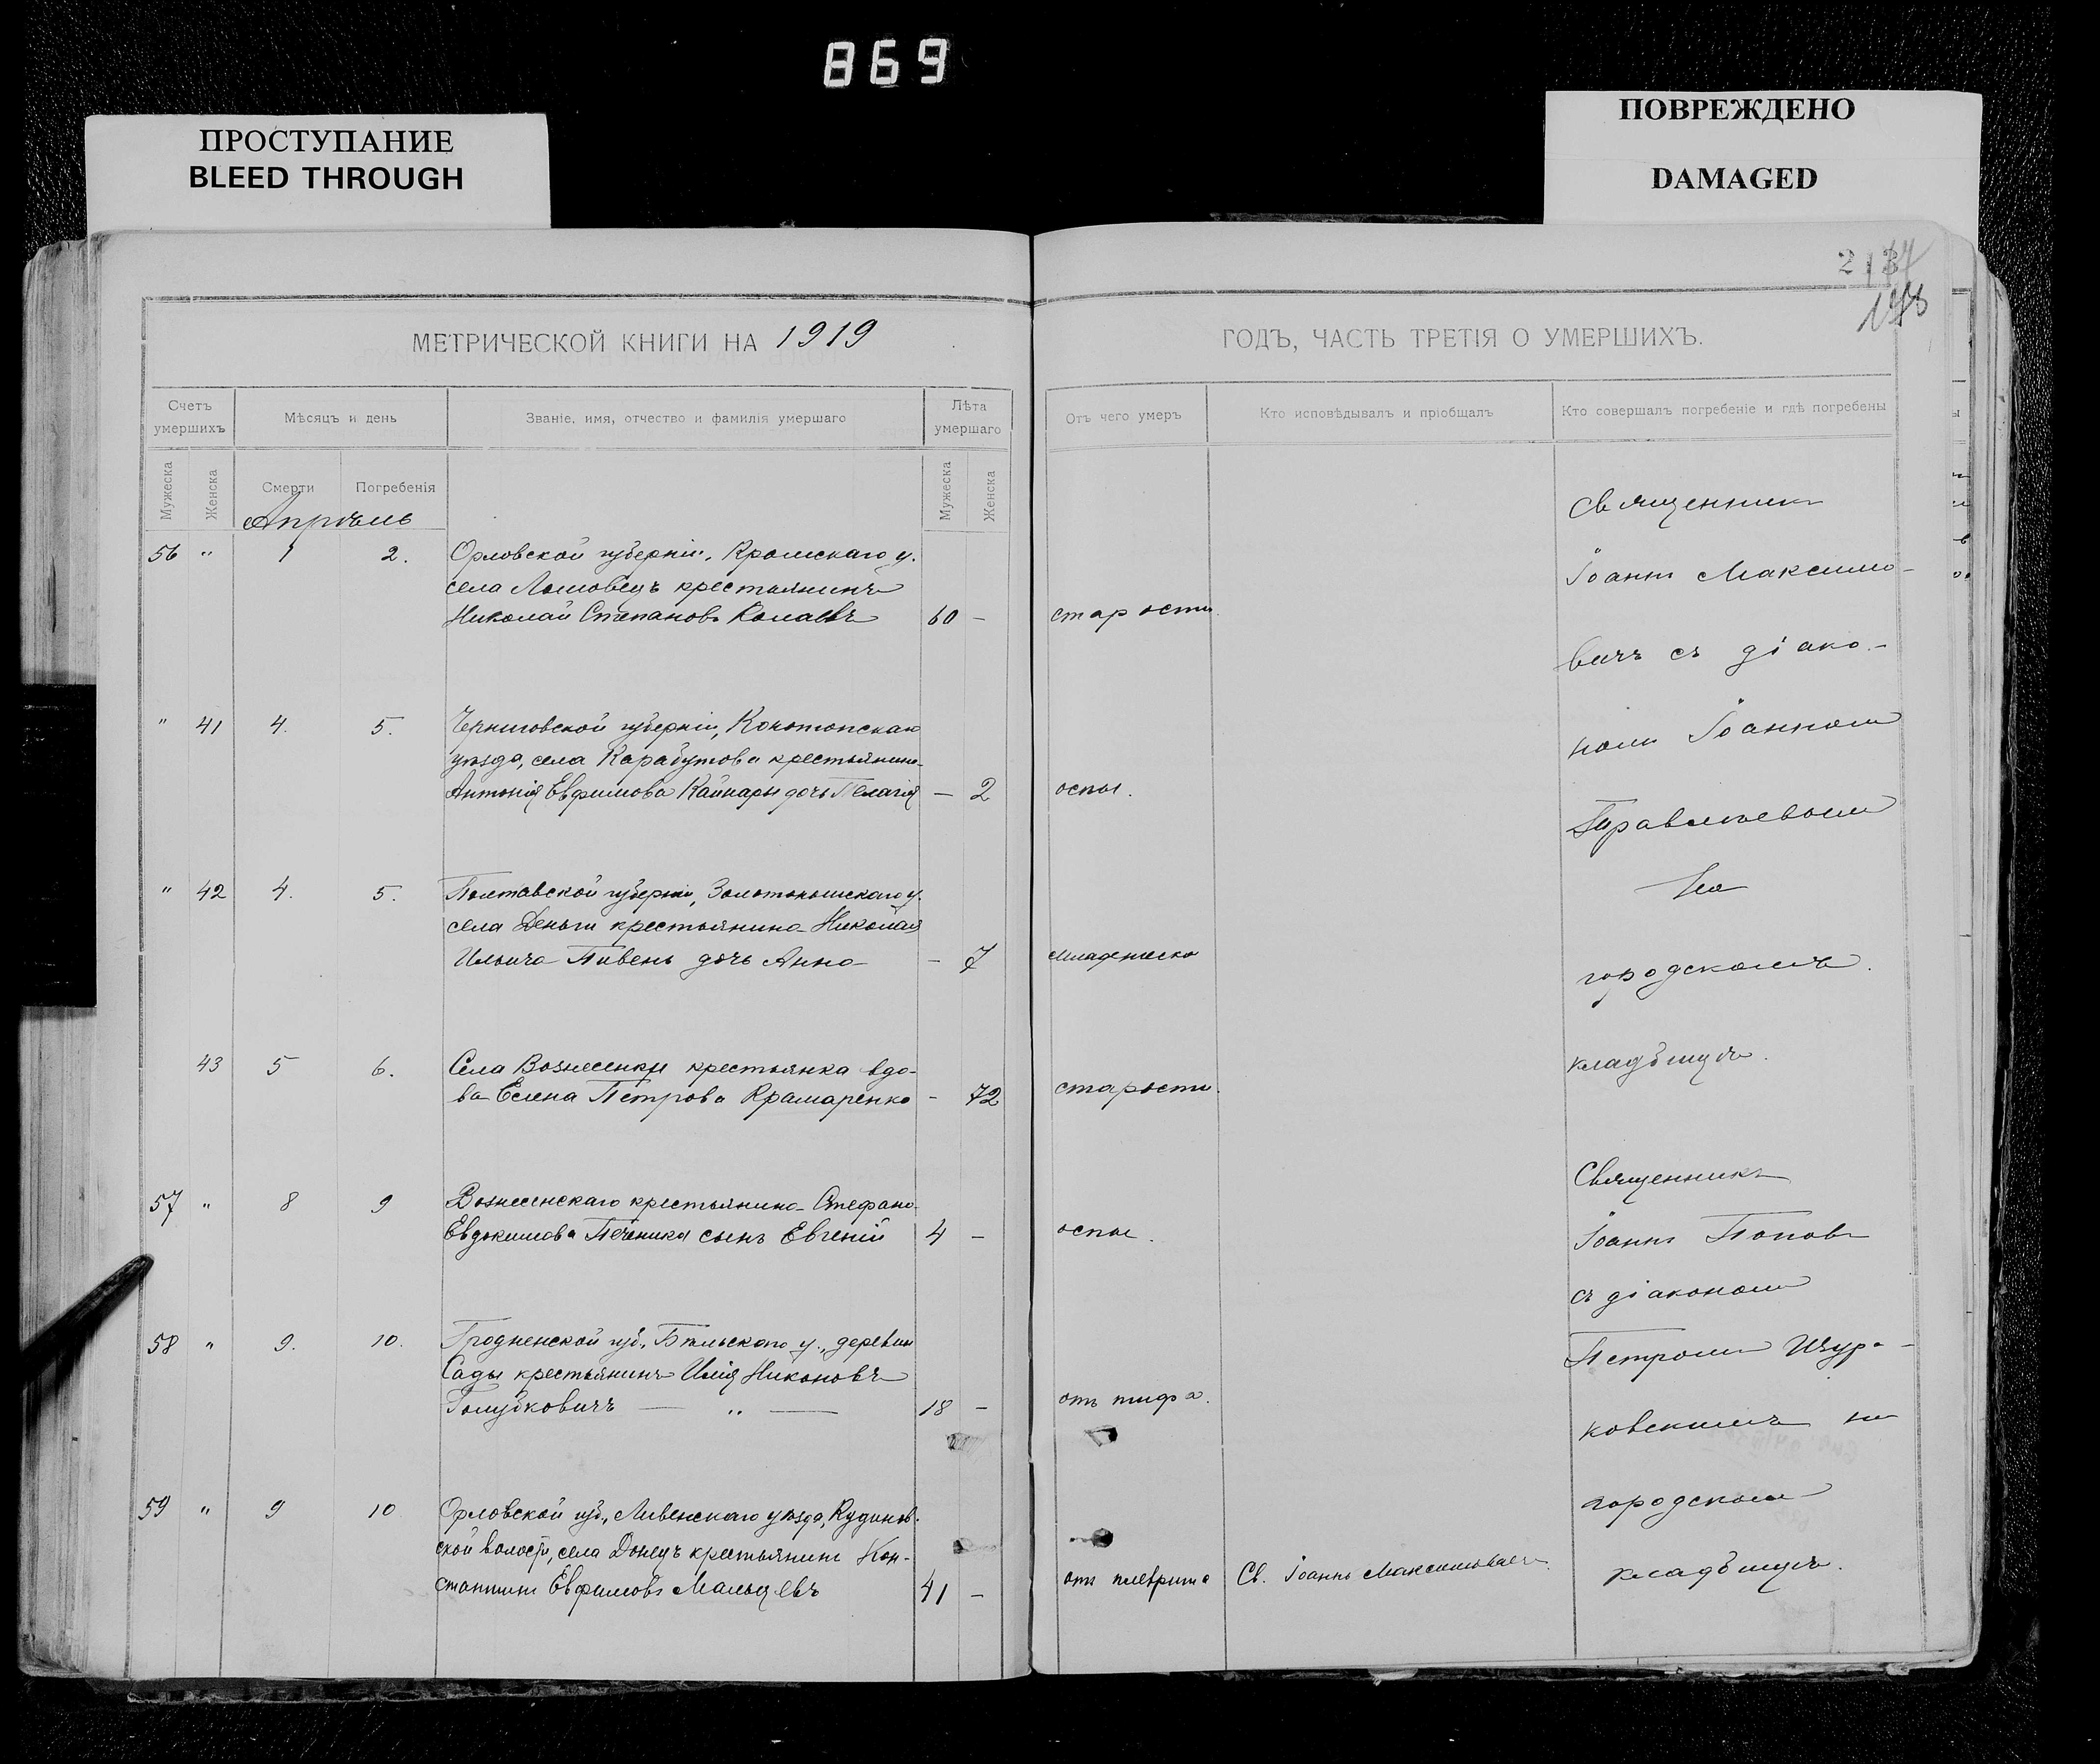 869
ПРОСТУПАНИЕ
BLEED THROUGH
ПОВРЕЖДЕНО
DAMAGED
МЕТРИЧЕСКОЙ КНИГИ НА 1919
ГОДЪ, ЧАСТЬ ТРЕТІЯ О УМЕРШИХЪ.
Счетъ умершихъ
Мѣсяцъ и день
Званіе, имя, отчество и фамилія умершаго
Лѣта умершаго
Отъ чего умеръ
Кто исповѣдывалъ и пріобщалъ
Кто совершалъ погребеніе и гдѣ погребены
Мужеска
Женска
Смерти
Погребенія
Мужеска
Женска
Апрѣль
56 " 1 2. Орловской губерніи, Кромскаго у.
села Ломовецъ крестьянинъ
Николай Степановъ 60 - старости.
" 41 4. 5. Черниговской губерніи, Конотопскаго
уѣзда, села Карабутова крестьянина
Антонія Евфимова Кайнары дочь Пелагія - 2 оспы.
" 42 4. 5. Полтавской губерніи, Золотоношскаго у.
села Деньги крестьянина Николая
Ильича Пивень дочь Анна - 7 младенческ
43 5 6. Села Вознесенки крестьянка вдо-
ва Елена Петрова Крамаренко - 72 старости.
57 " 8 9 Вознесенскаго крестьянина Стефана
Евдокимова Печеника сынъ Евгеній 4 - оспы.
58 " 9. 10. Гродненской губ., Бѣльскаго у., деревни
Сады крестьянинъ Илія Никоновъ
Голубковичъ — " — 18 - отъ тифа.
59 " 9 10 Орловской губ., Ливенскаго уѣзда, Кудинов-
ской волости, села Донецъ крестьянинъ Кон-
стантинъ Евфимовъ Мальцевъ 41 - отъ плеврита Св. Іоаннъ Максимович
Священникъ
Іоаннъ Максимо-
вичъ съ діако-
номъ Іоанномъ
На
городскомъ
кладбищѣ.
Священникъ
Іоаннъ Поповъ
съ діакономъ
Петромъ Шура-
ковскимъ на
городскомъ
кладбищѣ.